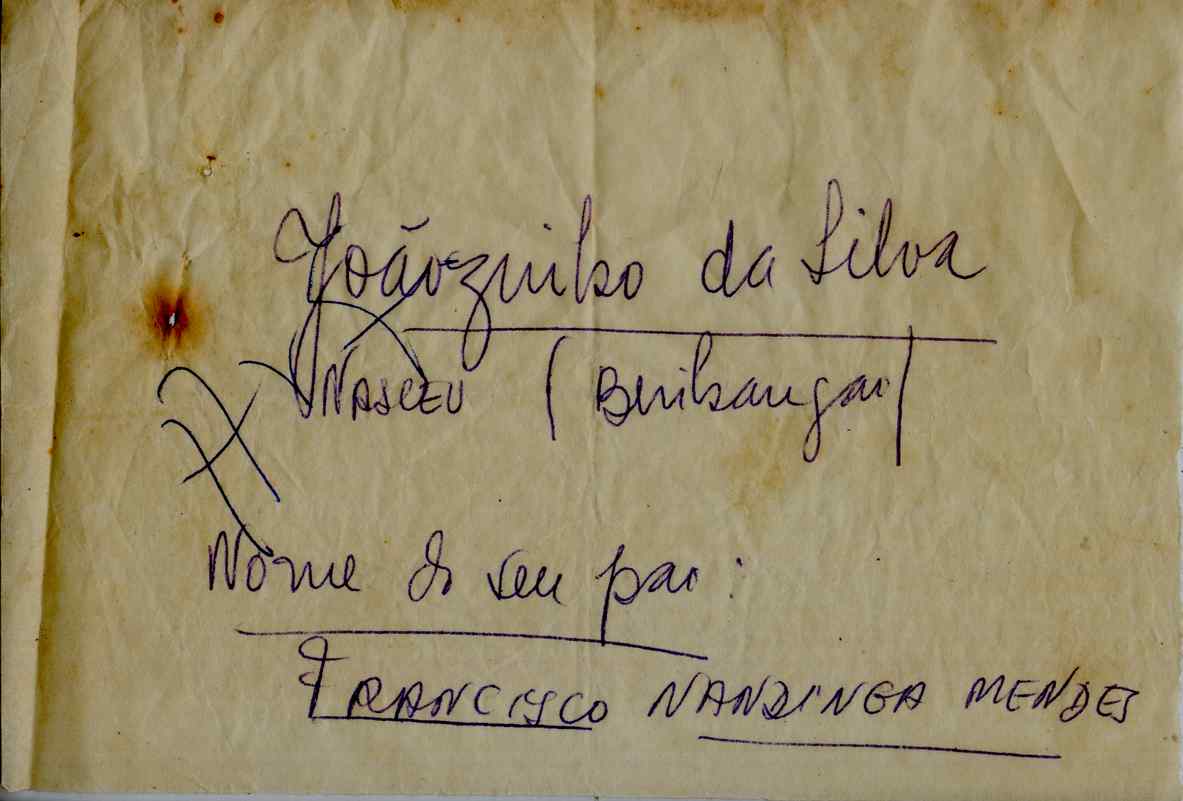 Joãozinho da Silva
NASCEU (Binhangar)
Nome do seu pai:
FRANCISCO NANDINGA MENDES